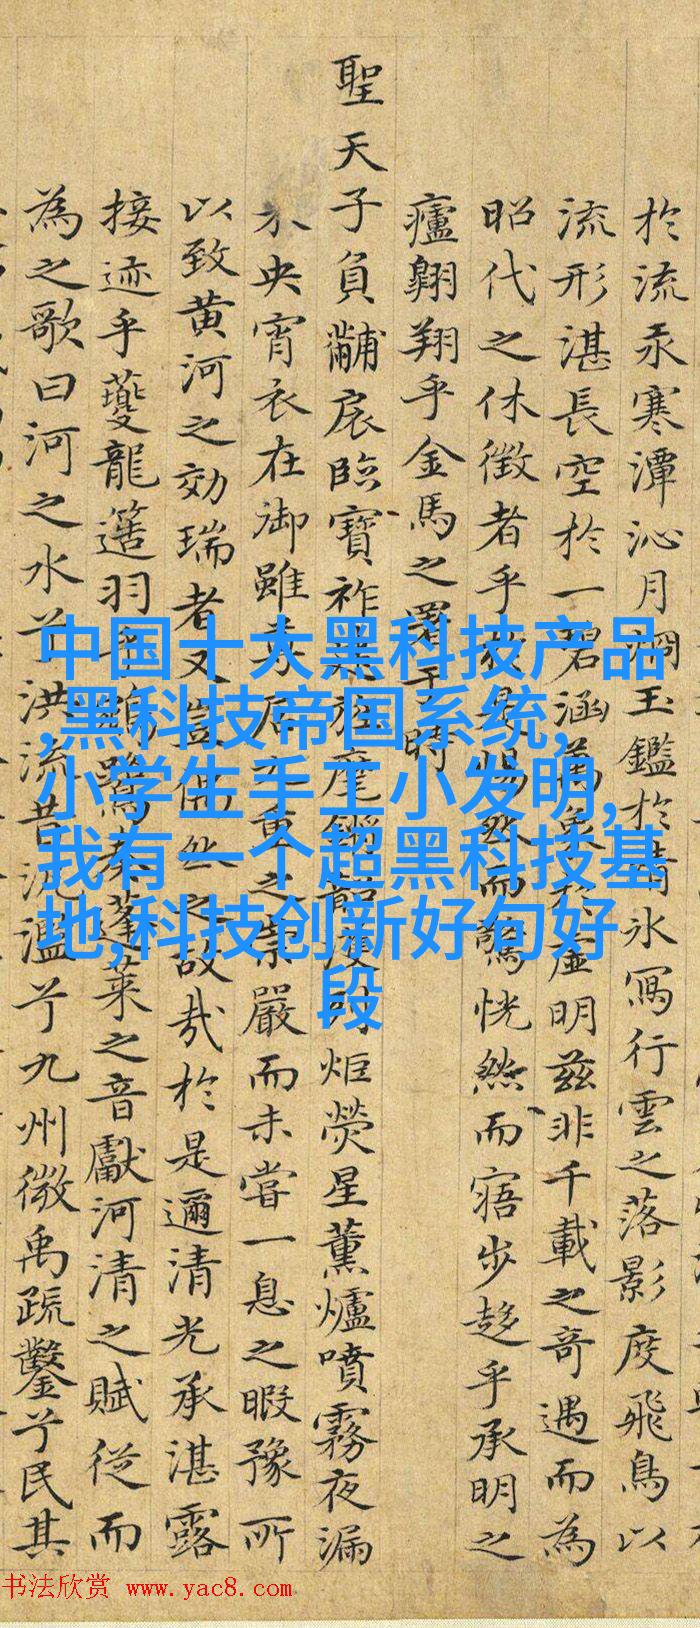 於流汞寒潭沁月爛玉鑑於清氷寫行雲之落影度飛鳥以
流形湛長空於一碧涵萬象於虛明茲非千載之奇遇而為
昭代之休徵者乎於是惕然而驚恍然而寤步趍乎承明之
廬翱翔乎金馬之署于時
聖天子負黼扆臨寶祚 麾 韶 炬熒星薰爐噴霧夜漏
未央宵衣在御雖 居 重之崇嚴而未嘗一息之暇豫所
以致黄河之効瑞者又豈偶然之故哉於是邇清光承湛露
接迹乎夔龍簉羽乎鵷鷺奏蓬莱之音獻河清之賦從而
為之歌曰河之水兮洪流昔汎濫兮九州微禹疏鑿兮民其
中国十大黑科技产品
,黑科技帝国系统,
小学生手工小发明,
我有一个超黑科技基
地,科技创新好句好
段
书法欣赏 www.yac8.com